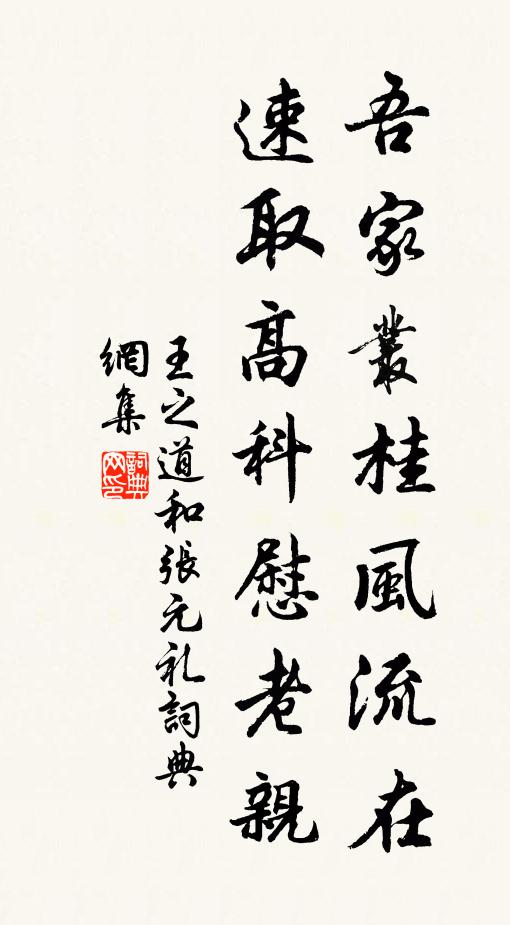 吾家叢桂風流在
速取高科慰老親
王之道和張元礼詞典
網集
詞典网印